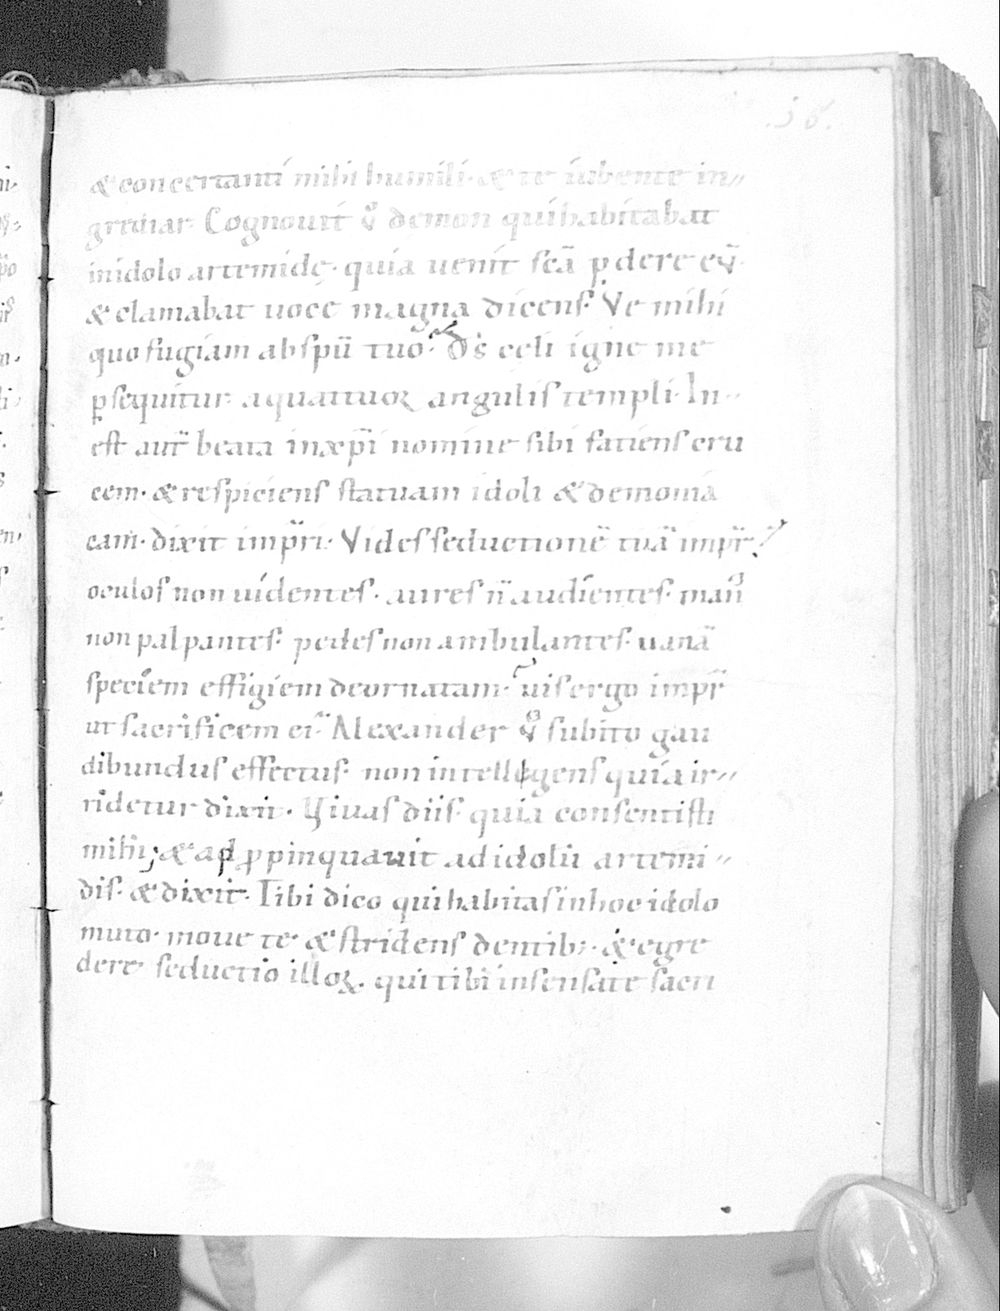 .58.
& concertanti mihi humili· & te iubente in
grediar· Cognouit ů demon qui habitabat
in idolo artemidę· quia uenit scā ꝑdere eū·
& clamabat uoce magna dicens· Ve mihi
quo fugiam ab spū tuo· d̄s celi igne me
ꝑsequitur a quattuoꝝ angulis templi· In
est aut̄ beata in xp̄i nomine sibi fatiens cru
cem· & respiciens statuam idoli & demonia
cam· dixit imp̄ri· Vides seductionē tuā imp̄r·
oculos non uidentes· aures n̄ audientes· man᷒
non palpantes· pedes non ambulantes· uanā
speciem effigiem deornatam· uis ergo imp̄r
ut sacrificem ei· Alexander ů subito gau
dibundus effectus· non intellegens quia ir
ridetur dixit· Viuas diis· quia consentisti
mihi; & apꝓpinquauit ad idolū artemi
dis· & dixit· Tibi dico qui habitas in hoc idolo
muto· moue te· & stridens dentib;· & egre
dere seductio illoꝝ· qui tibi insensate sacri